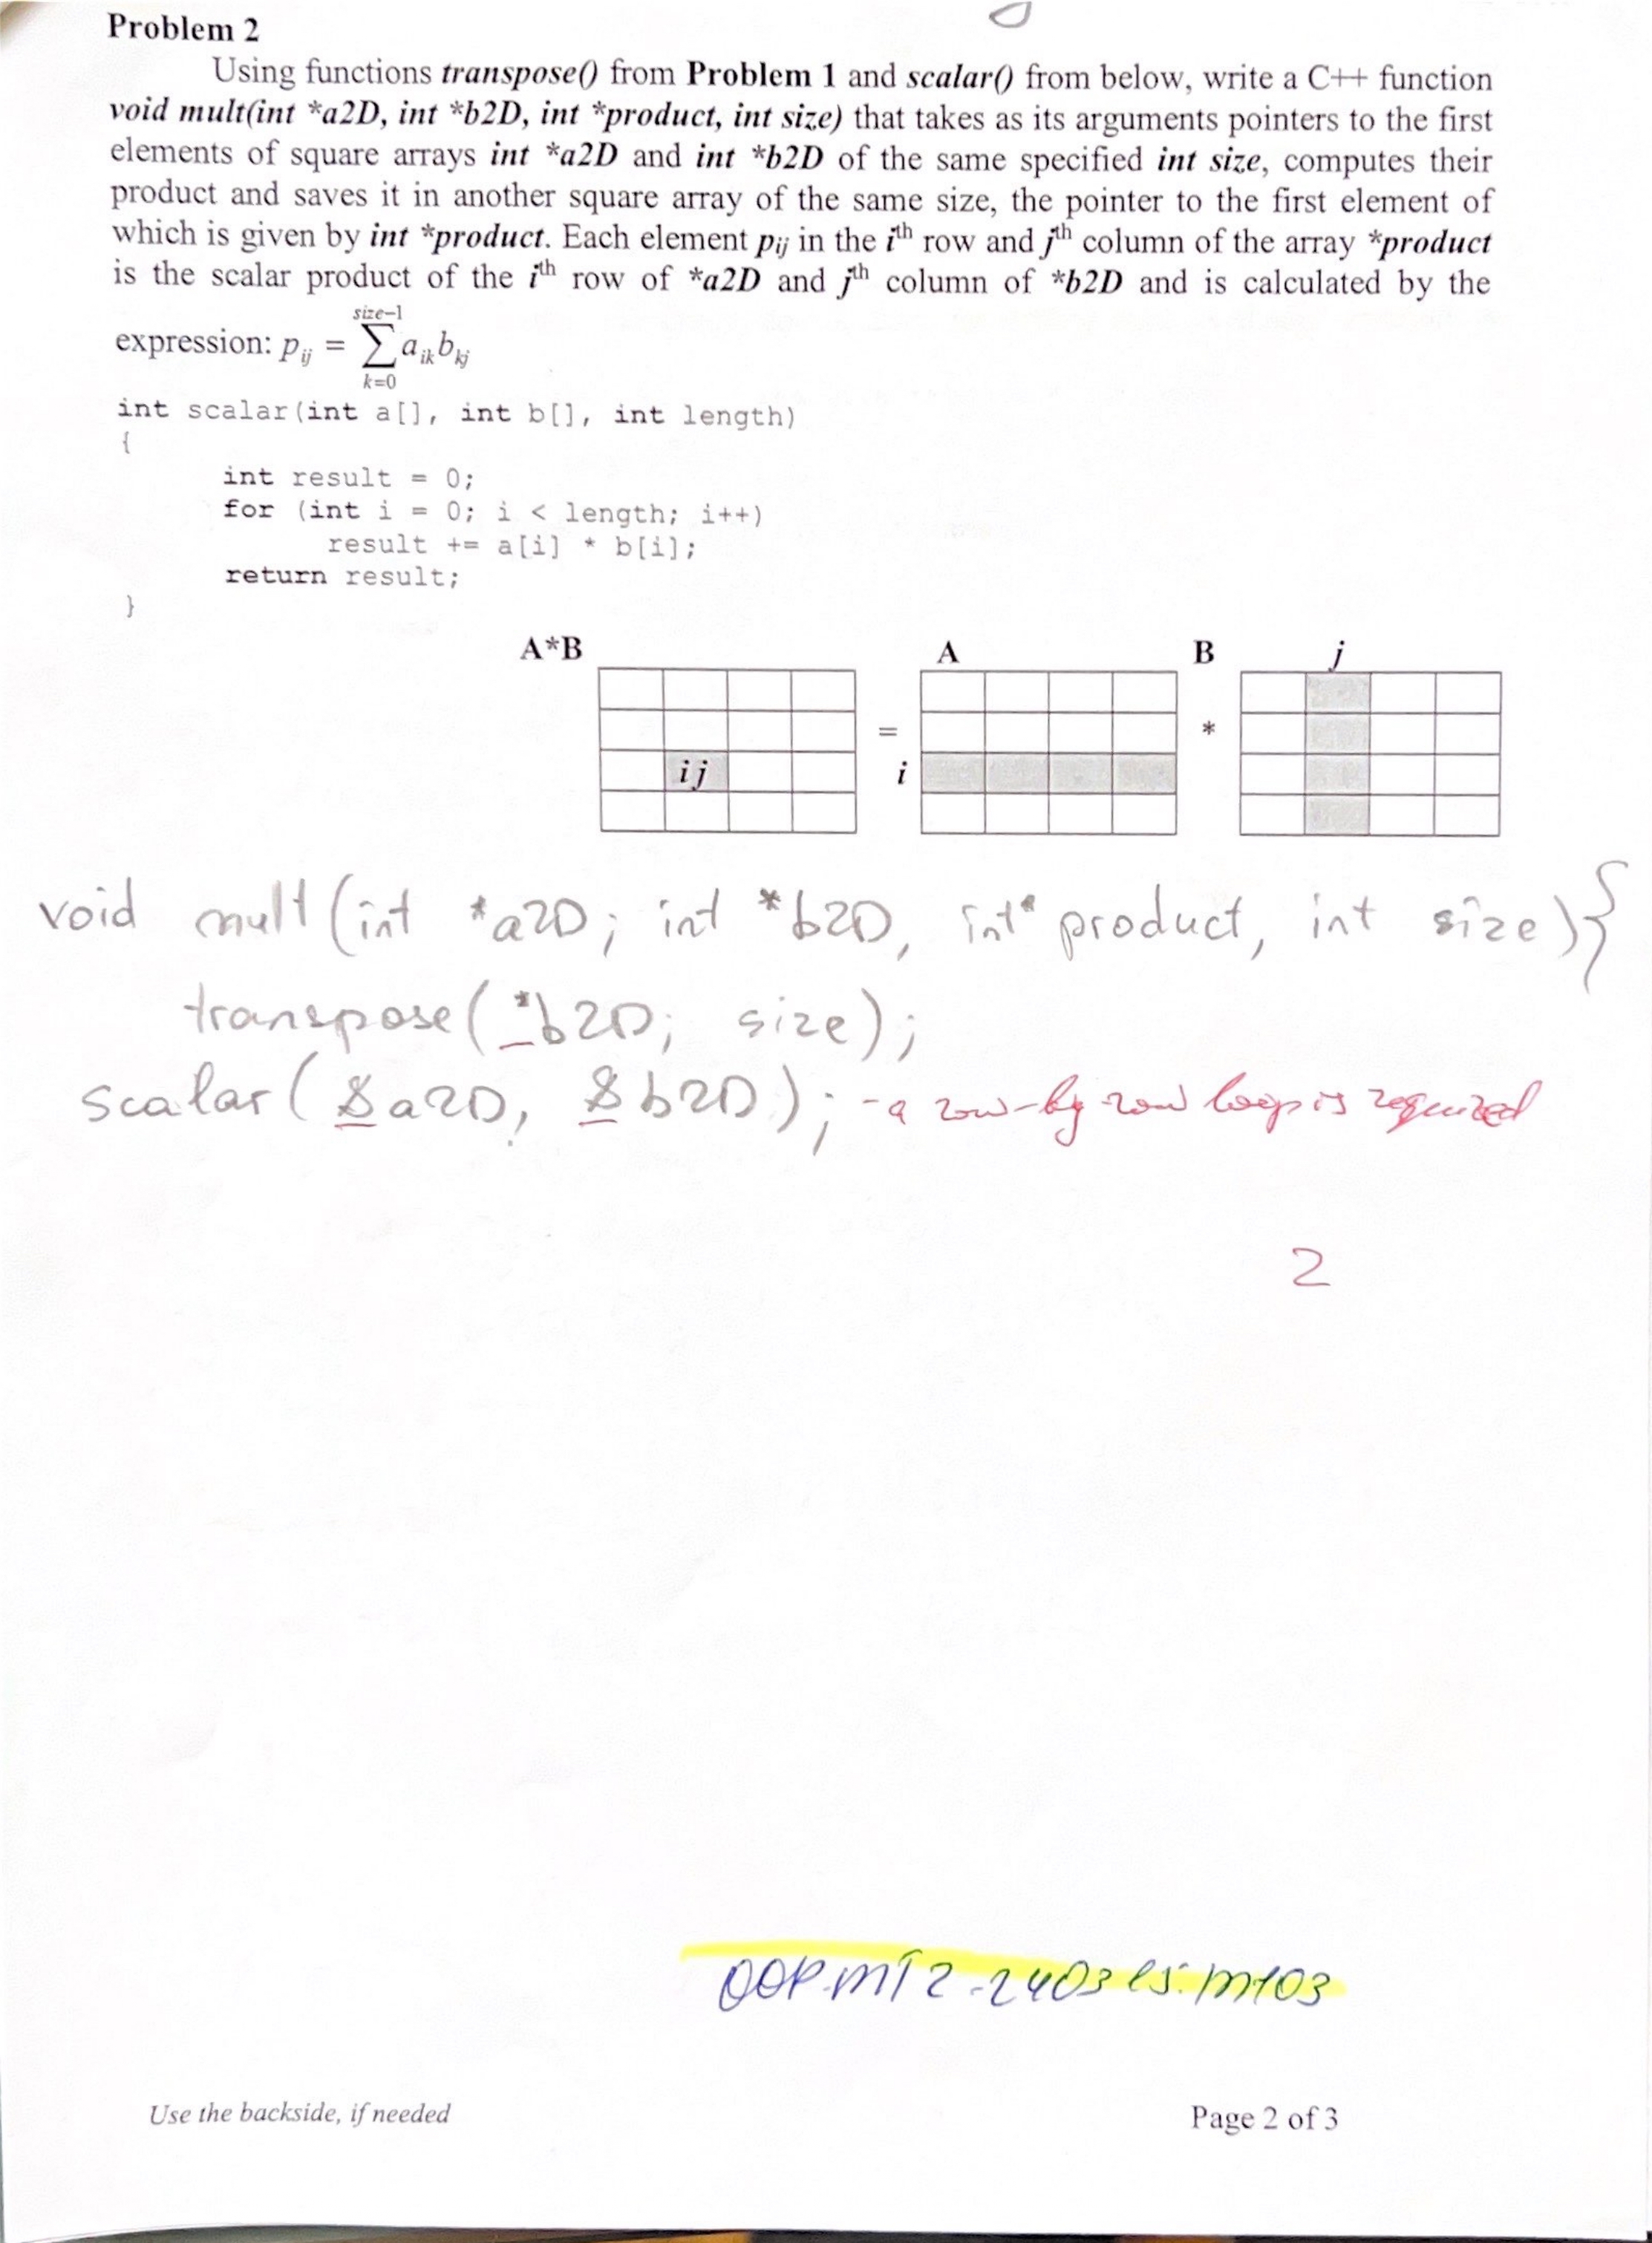 Problem 2
Using functions transpose() from Problem 1 and scalar() from below, write a C++ function
void mult(int *a2D, int *b2D, int *product, int size) that takes as its arguments pointers to the first
elements of square arrays int *a2D and int *b2D of the same specified int size, computes their
product and saves it in another square array of the same size, the pointer to the first element of
which is given by int *product. Each element pij in the ith row and jth column of the array *product
is the scalar product of the ith row of *a2D and jth column of *b2D and is calculated by the
expression: pij = size-1 ∑ k=0 aik bkj
int scalar(int a[], int b[], int length)
{
int result = 0;
for (int i = 0; i < length; i++)
result += a[i] * b[i];
return result;
}
A*B A B j
= *
ij i
void mult(int *a2D; int *b2D, int* product, int size){
transpose(*b2D; size);
scalar(&a2D, &b2D); - a row-by-row loop is required
2
OOP.MT2-240325.M103
Use the backside, if needed Page 2 of 3